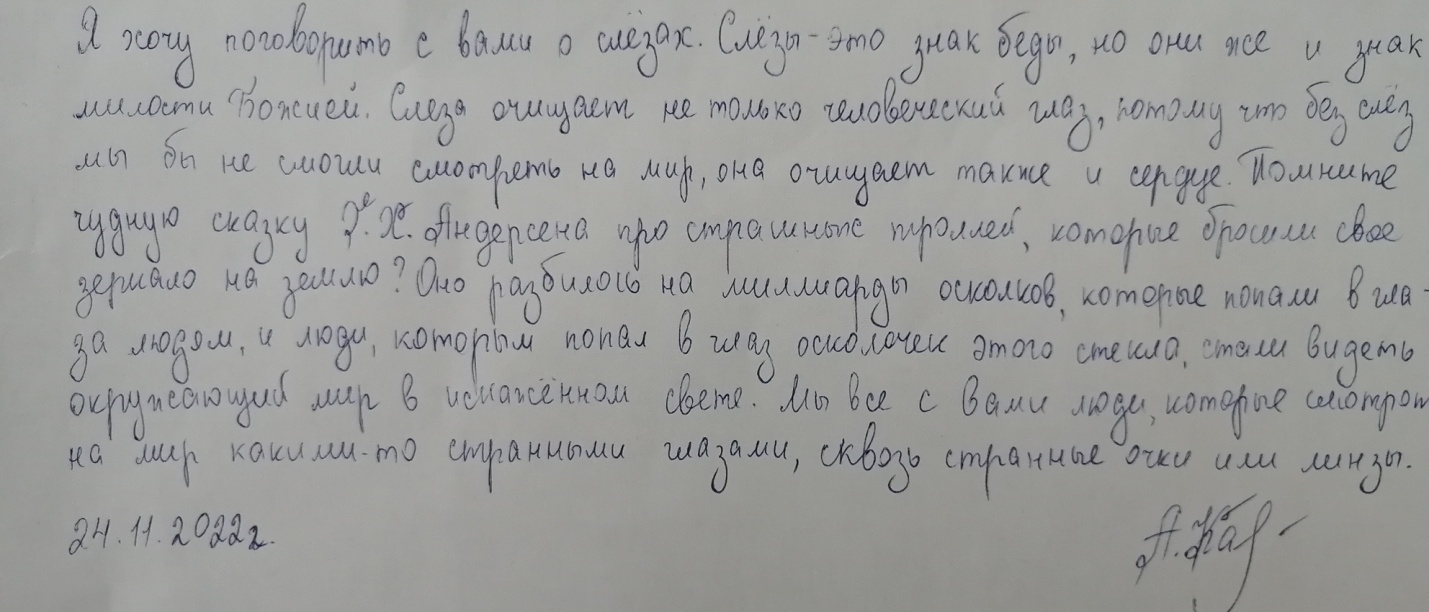 Я хочу поговорить с вами о слёзах. Слёзы - это знак беды, но они же и знак
милости Божией. Слеза очищает не только человеческий глаз, потому что без слёз
мы бы не смогли смотреть на мир, она очищает также и сердце. Помните
чудную сказку Г. Х. Андерсена про страшных троллей, которые бросили свое
зеркало на землю? Оно разбилось на миллиарды осколков, которые попали в гла-
за людям, и люди, которым попал в глаз осколочек этого стекла, стали видеть
окружающий мир в искажённом свете. Мы все с Вами люди, которые смотрят
на мир какими-то странными глазами, сквозь странные очки или линзы.
24.11.2022г.